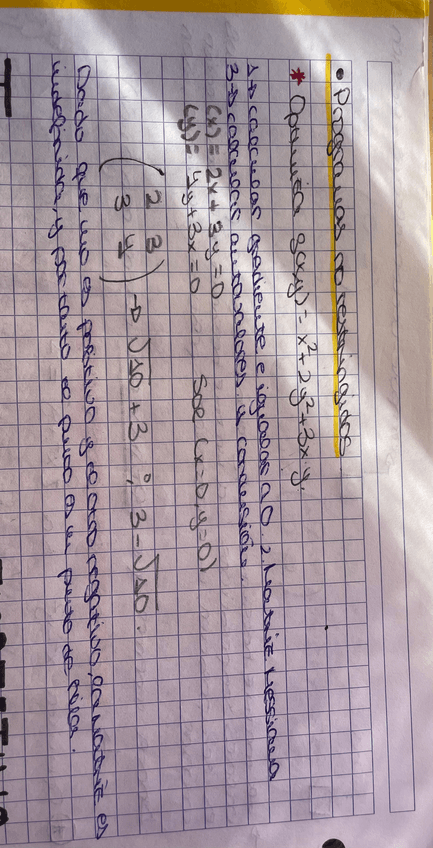 • Programas no restringidos
* Optimiza g(x,y) = x²+2y²+3xy.
1→ calcular gradiente e igualar a 0. 2. Matriz Hessiana
3→ calcular autovalores y conclusión.
(x) = 2x+3y=0
(y) = 4y+3x=0 Sol (x=0, y=0)
( 2 3
3 4 ) → √10 + 3 ; 3 - √10.
Dado que uno es positivo y el otro negativo, la matriz es
indefinida, y por tanto el punto es un punto de silla.